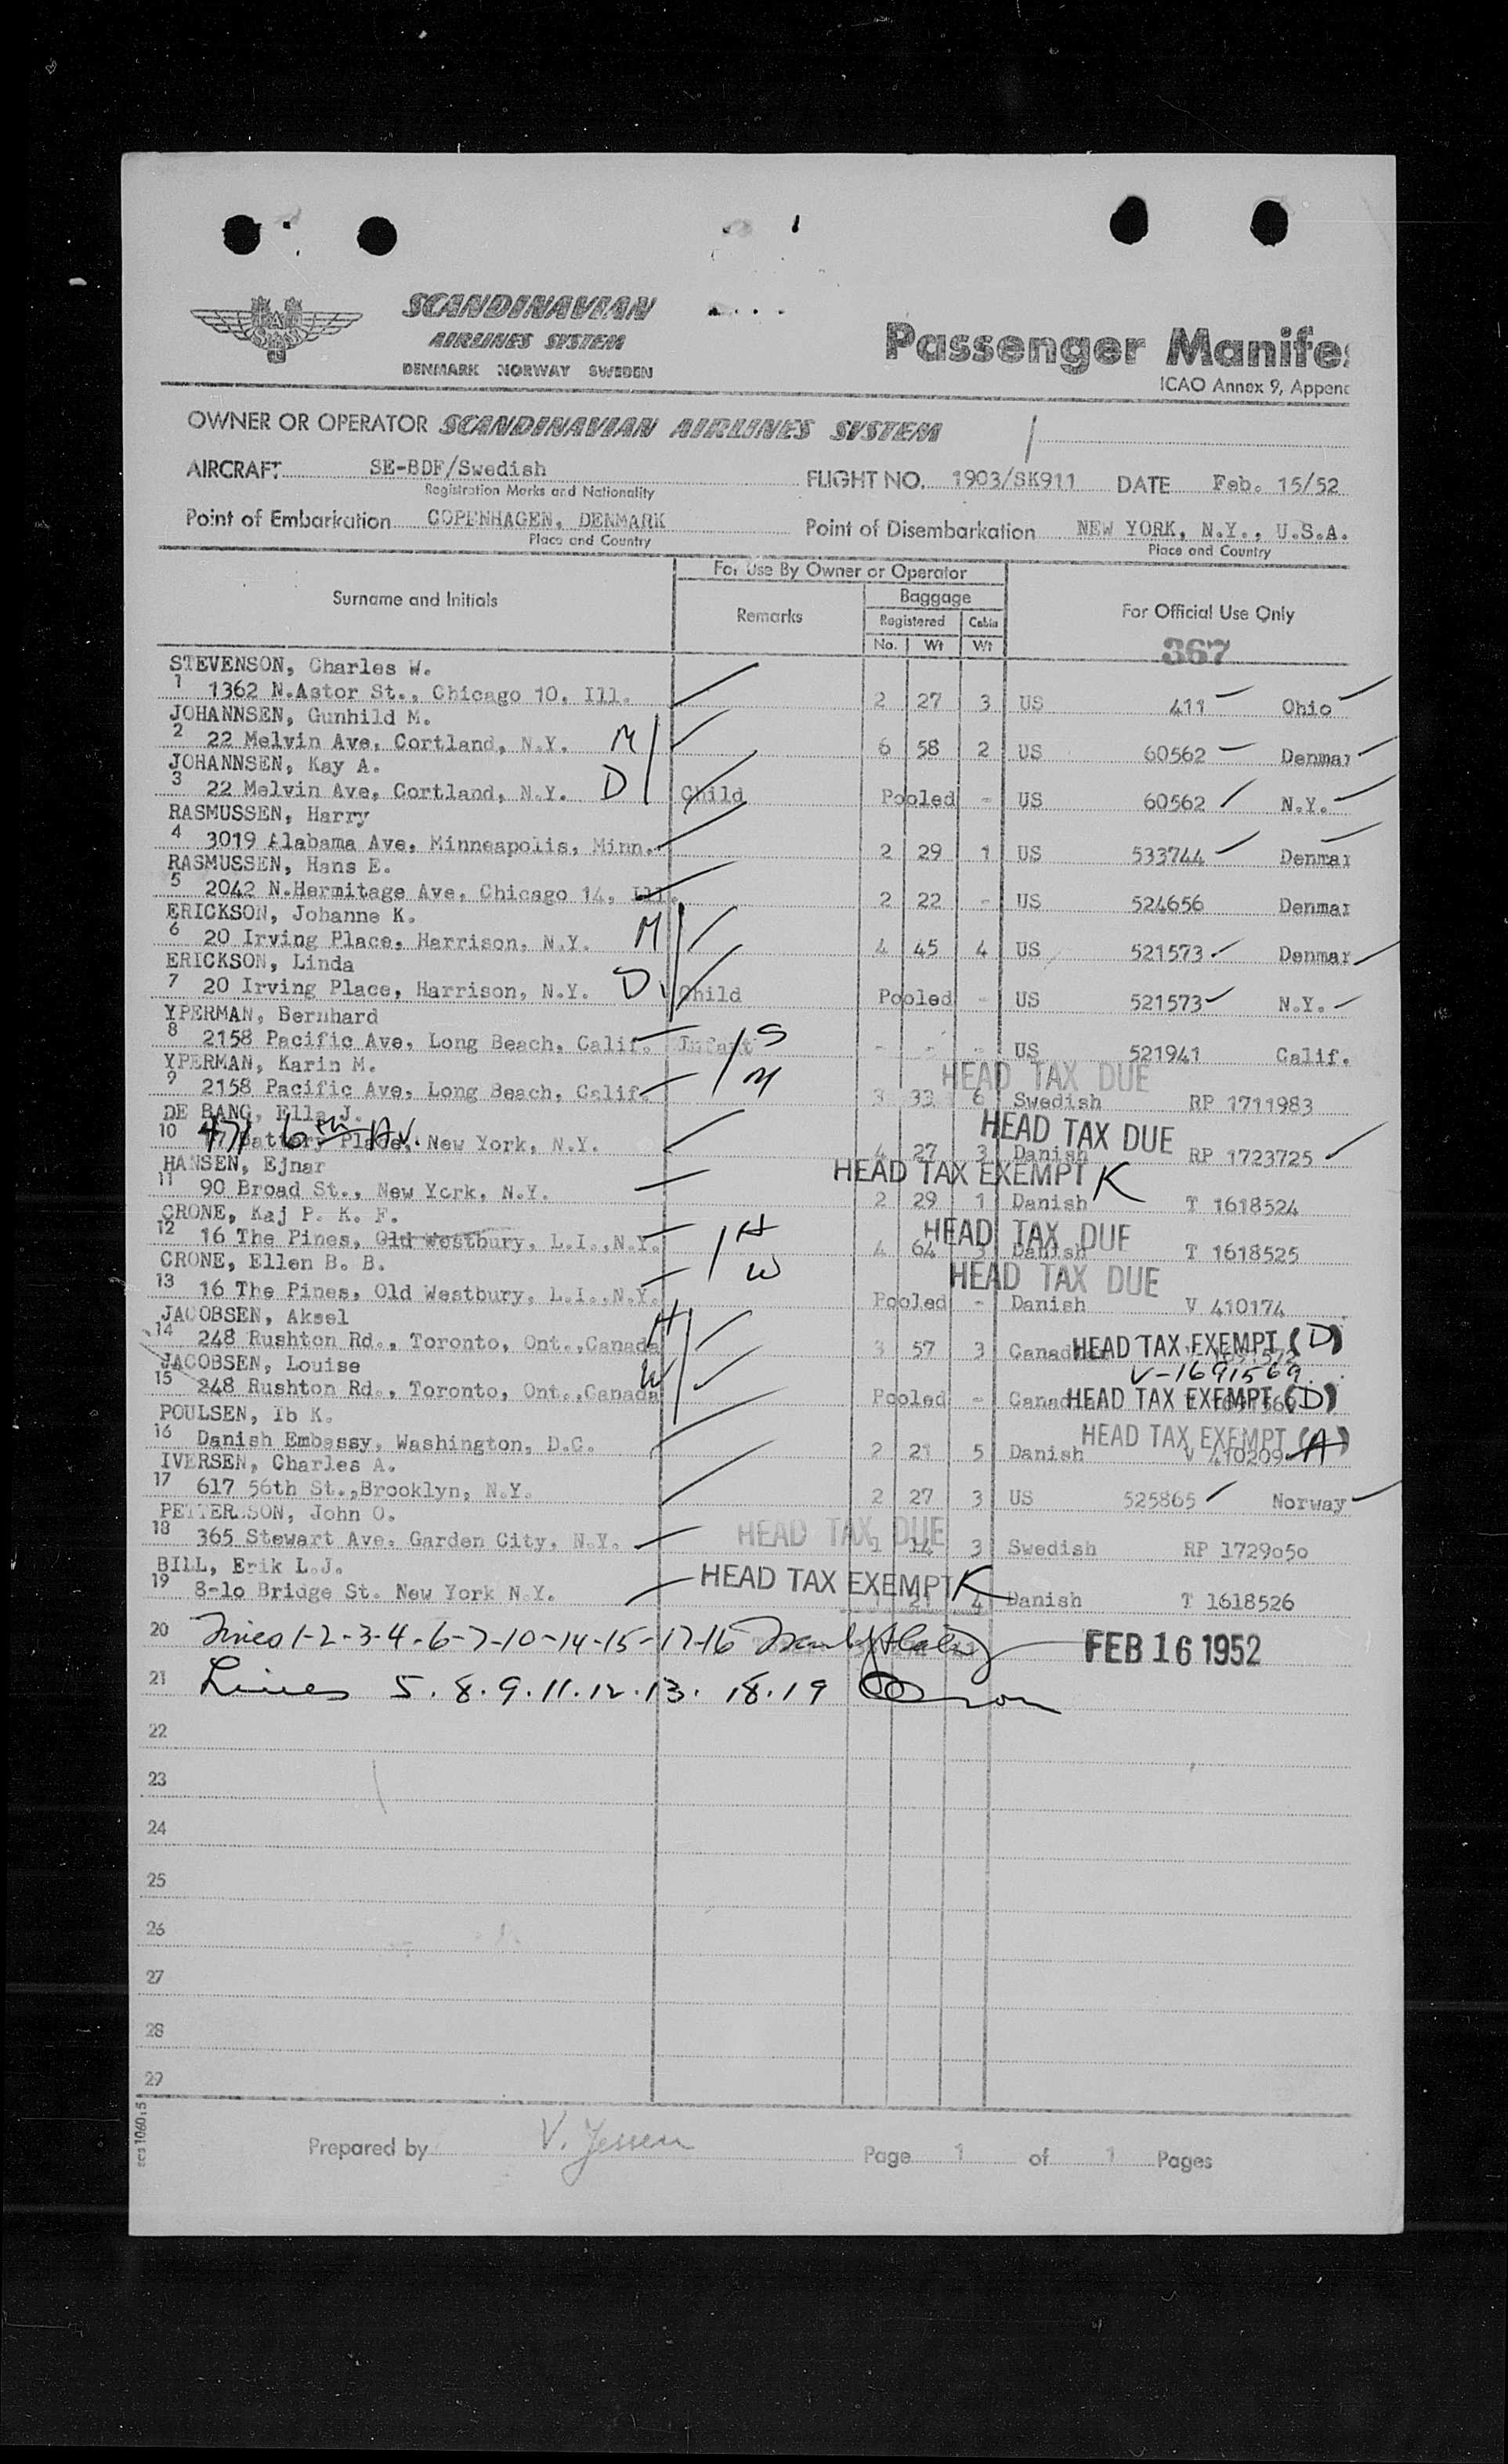 SCANDINAVIAN
AIRLINES SYSTEM
DENMARK NORWAY SWEDEN
Passenger Manifes
ICAO Annex 9, Append
OWNER OR OPERATOR SCANDINAVIAN AIRLINES SYSTEM
AIRCRAFT SE-BDF/Swedish FLIGHT NO. 1903/SK911 DATE Feb. 15/52
Registration Marks and Nationality
Point of Embarkation COPENHAGEN, DENMARK Point of Disembarkation NEW YORK, N.Y., U.S.A.
Place and Country Place and Country
For Use By Owner or Operator
Surname and Initials Remarks Baggage For Official Use Only
Registered Cabin
No. Wt Wt
367
STEVENSON, Charles W.
1 1362 N.Astor St., Chicago 10, Ill. 2 27 3 US 411 Ohio
JOHANNSEN, Gunhild M.
2 22 Melvin Ave, Cortland, N.Y. M 6 58 2 US 60562 Denmar
JOHANNSEN, Kay A.
3 22 Melvin Ave, Cortland, N.Y. D Child Pooled - US 60562 N.Y.
RASMUSSEN, Harry
4 3019 Alabama Ave, Minneapolis, Minn. 2 29 1 US 533744 Denmar
RASMUSSEN, Hans E.
5 2042 N.Hermitage Ave, Chicago 14, Ill. 2 22 - US 524656 Denmar
ERICKSON, Johanne K.
6 20 Irving Place, Harrison, N.Y. M 4 45 4 US 521573 Denmar
ERICKSON, Linda
7 20 Irving Place, Harrison, N.Y. D Child Pooled - US 521573 N.Y.
YPERMAN, Bernhard
8 2158 Pacific Ave, Long Beach, Calif. Infant S - - - US 521941 Calif.
YPERMAN, Karin M. HEAD TAX DUE
9 2158 Pacific Ave, Long Beach, Calif. M 3 33 6 Swedish RP 1711983
DE BANG, Ella J. HEAD TAX DUE
10 471 6th Av. 17 Battery Place, New York, N.Y. 4 27 3 Danish RP 1723725
HANSEN, Ejnar HEAD TAX EXEMPT K
11 90 Broad St., New York, N.Y. 2 29 1 Danish T 1618524
CRONE, Kaj P. K. F. HEAD TAX DUE
12 16 The Pines, Old Westbury, L.I.,N.Y. H 4 64 3 Danish T 1618525
CRONE, Ellen B. B. HEAD TAX DUE
13 16 The Pines, Old Westbury, L.I.,N.Y. W Pooled - Danish V 410174
JACOBSEN, Aksel
14 248 Rushton Rd., Toronto, Ont.,Canada H 3 57 3 Canadian HEAD TAX EXEMPT (D)
JACOBSEN, Louise V-1691569
15 248 Rushton Rd., Toronto, Ont.,Canada W Pooled - Canadian HEAD TAX EXEMPT (D)
POULSEN, Ib K. HEAD TAX EXEMPT (A)
16 Danish Embassy, Washington, D.C. 2 21 5 Danish V 410209
IVERSEN, Charles A.
17 617 56th St.,Brooklyn, N.Y. 2 27 3 US 525865 Norway
PETTERSSON, John O. HEAD TAX DUE
18 365 Stewart Ave. Garden City, N.Y. 1 14 3 Swedish RP 1729o5o
BILL, Erik L.J. HEAD TAX EXEMPT K
19 8-1o Bridge St. New York N.Y. 1 21 4 Danish T 1618526
20 Lines 1-2-3-4-6-7-10-14-15-17-16 FEB 16 1952
21 Lines 5.8.9.11.12.13. 18.19
22
23
24
25
26
27
28
29
scs 1060:5
Prepared by V. Jessen Page 1 of 1 Pages